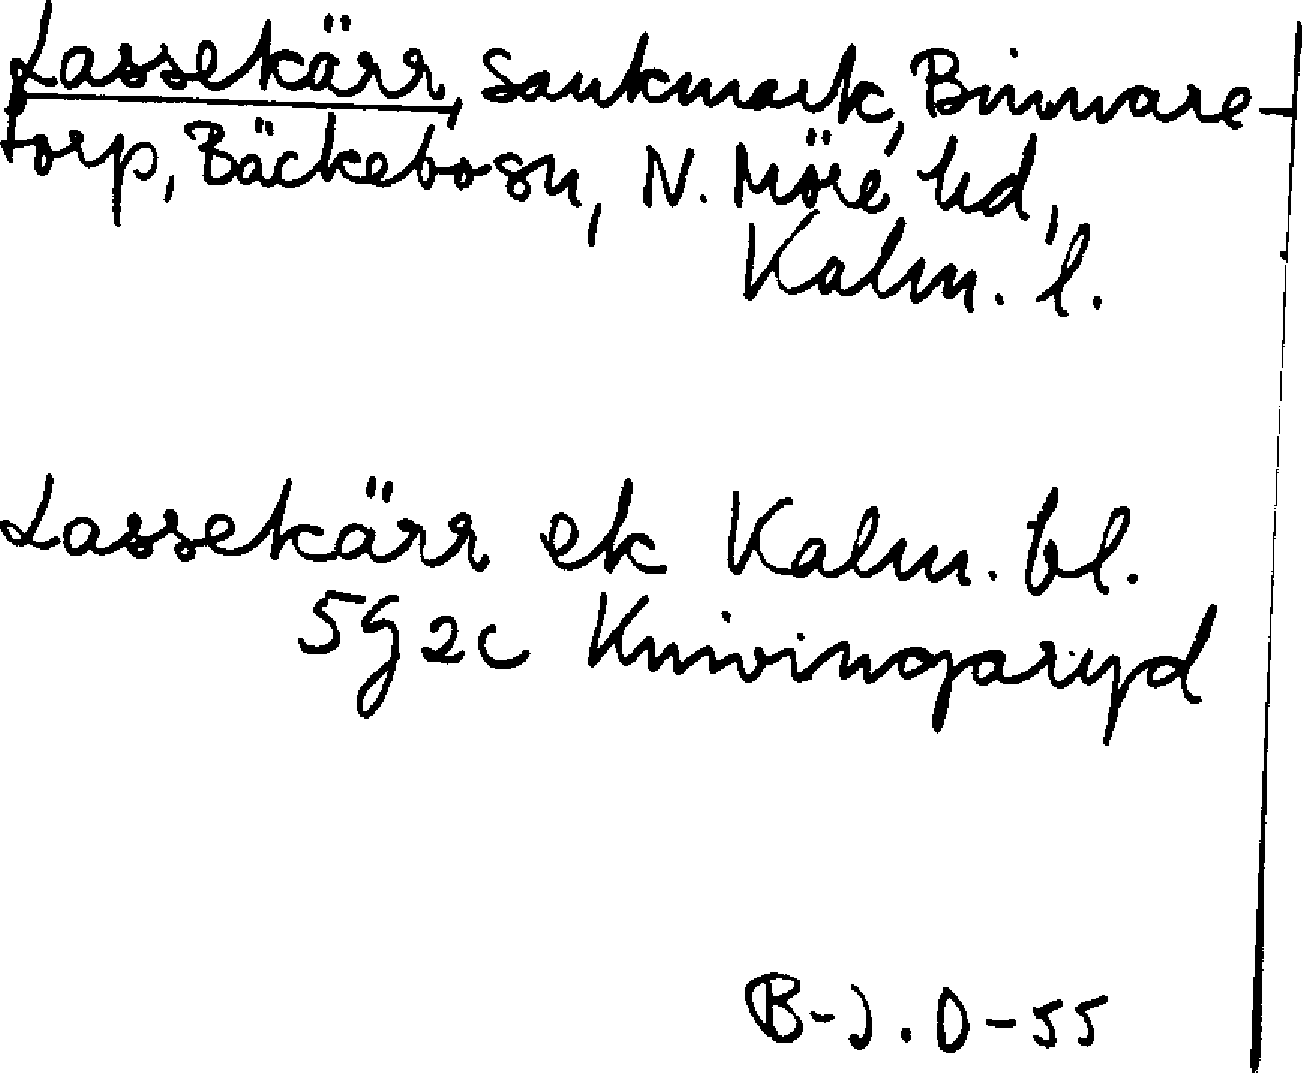 Lassekärr, Sankmark, Binnare-
torp, Bäckebo sn, N. Möre hd,
Kalm. l.
Lassekärr ek Kalm. bl.
5G2c Knivingaryd
B-J. D-55